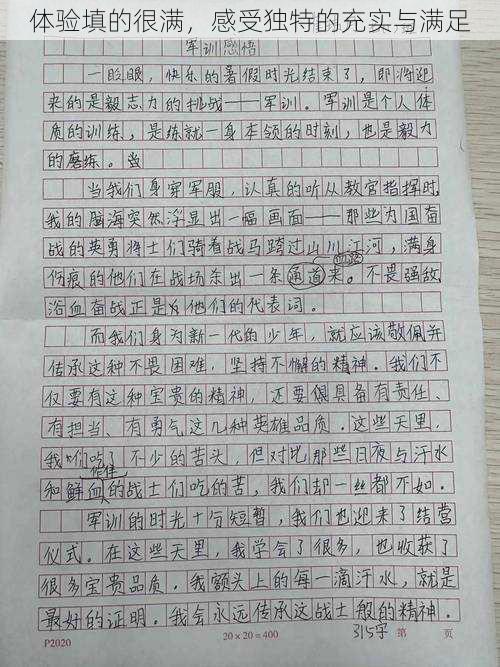 体验填的很满，感受独特的充实与满足
军训感悟
一眨眼，快乐的暑假时光结束了，即将迎
来的是毅志力的挑战——军训。军训是个人体
质的训练，是练就一身本领的时刻，也是毅力
的磨练。当
当我们身穿军服，认真的听从教官指挥时，
我的脑海突然浮显出一幅画面——那些为国奋
战的英勇将士们骑着战马跨过山川江河，满身
血路
伤痕的他们在战场杀出一条通道来。不畏强敌、
浴血奋战正是为他们的代表词。
而我们身为新一代的少年，就应该敬佩并
传承这种不畏困难，坚持不懈的精神。我们不
仅要有这种宝贵的精神，还要具备有责任、
有担当、有勇气这几种英雄品质。这些天里，
我们吃了不少的苦头，但对比那些日夜与汗水
和鲜血的战士们吃的苦，我们却一丝都不如。
军训的时光十分短暂，我们也迎来了结营
仪式。在这些天里，我学会了很多，也收获了
很多宝贵品质。我额头上的每一滴汗水，就是
最好的证明。我会永远传承这战士般的精神。
P2020
20×20=400
315字
第 页